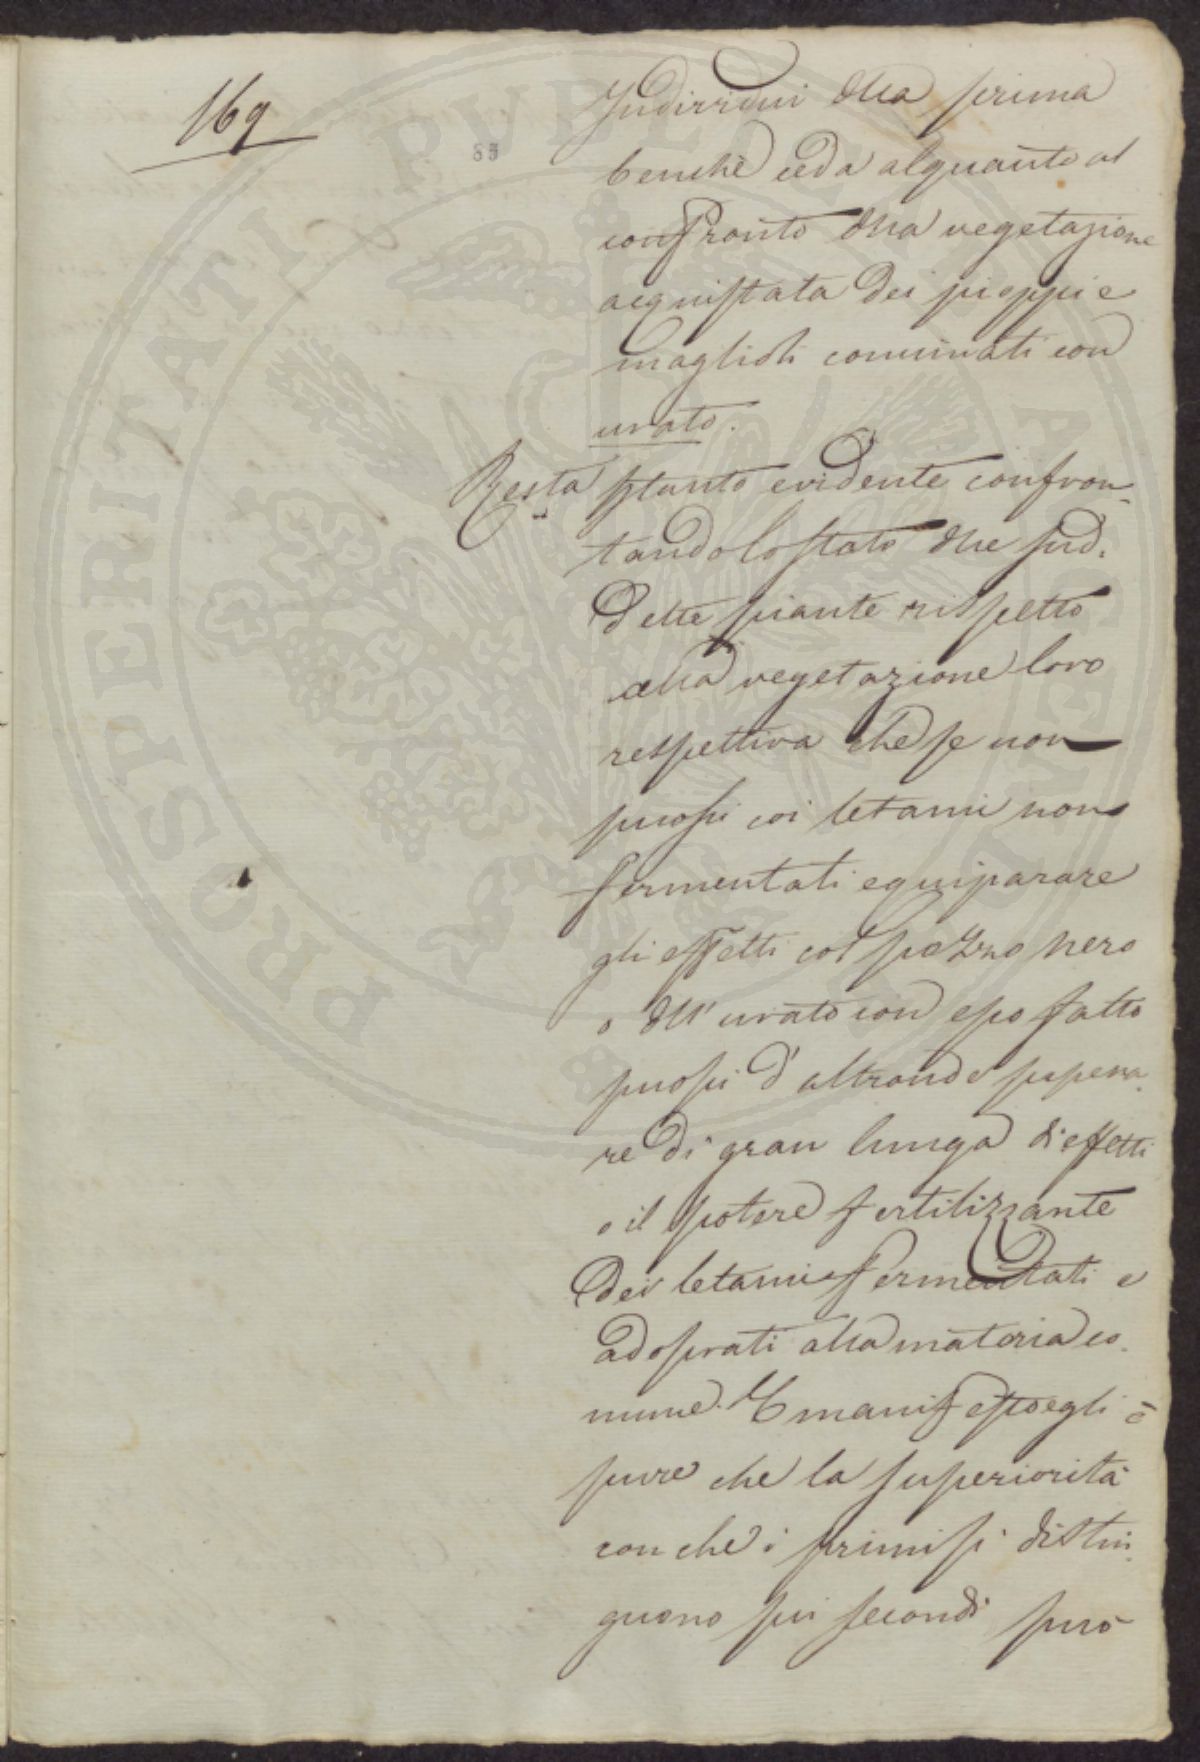 169
85
Individui dlla prima
benchè ceda alquanto al
confronto dlla vegetazione
acquistata dei pioppi e
maglioli concimati con
urato.
Resta ptanto evidente confron-
tando lo stato dlle sud.
dette piante rispetto
alla vegetazione loro
respettiva che se non
puossi coi letami non
fermentati equiparare
gli effetti col pozzo nero
o dll' urato con esso fatto
puossi d'altronde supera-
re di gran lunga di effetti
o il potere fertilizzante
dei letami fermentati e
adoprati alla materia co-
mune. E manifesto egli è
pure che la superiorità
con che i primi si distin-
guono sui secondi può
PROSPERITATI PVBLICAE AVGENDAE